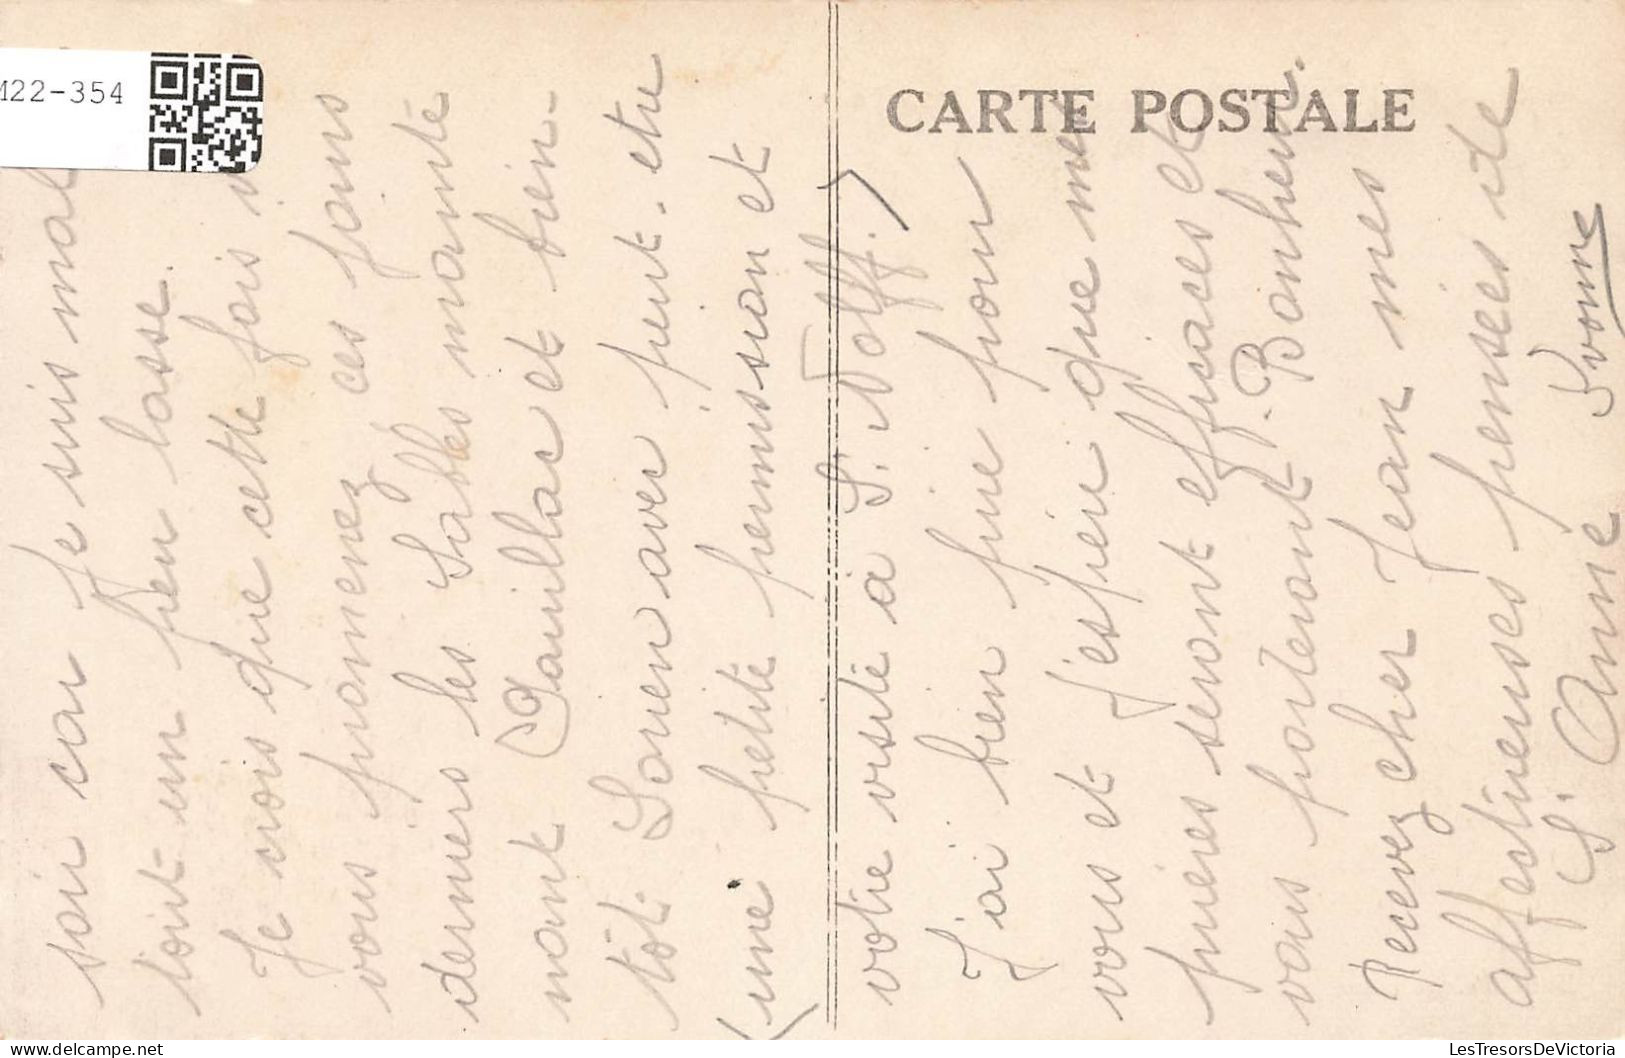 M22-354
CARTE POSTALE
soir car je suis mal
tout un peu lasse.
Je crois que cette fois
vous promenez ces jours
derniers les Sables mainte
nant Pauillac et bien-
tôt Lorien avec peut-etre
(une petite permission et
votre visite à S. Nolff.)
J'ai bien prie pour
vous et j'espère que mes
prières seront efficaces et
vous porteront P. Bonheur.
Recevez cher Jean mes
affectueuses pensées de
S. Anne Yvonne
LesTresorsDeVictoria.com